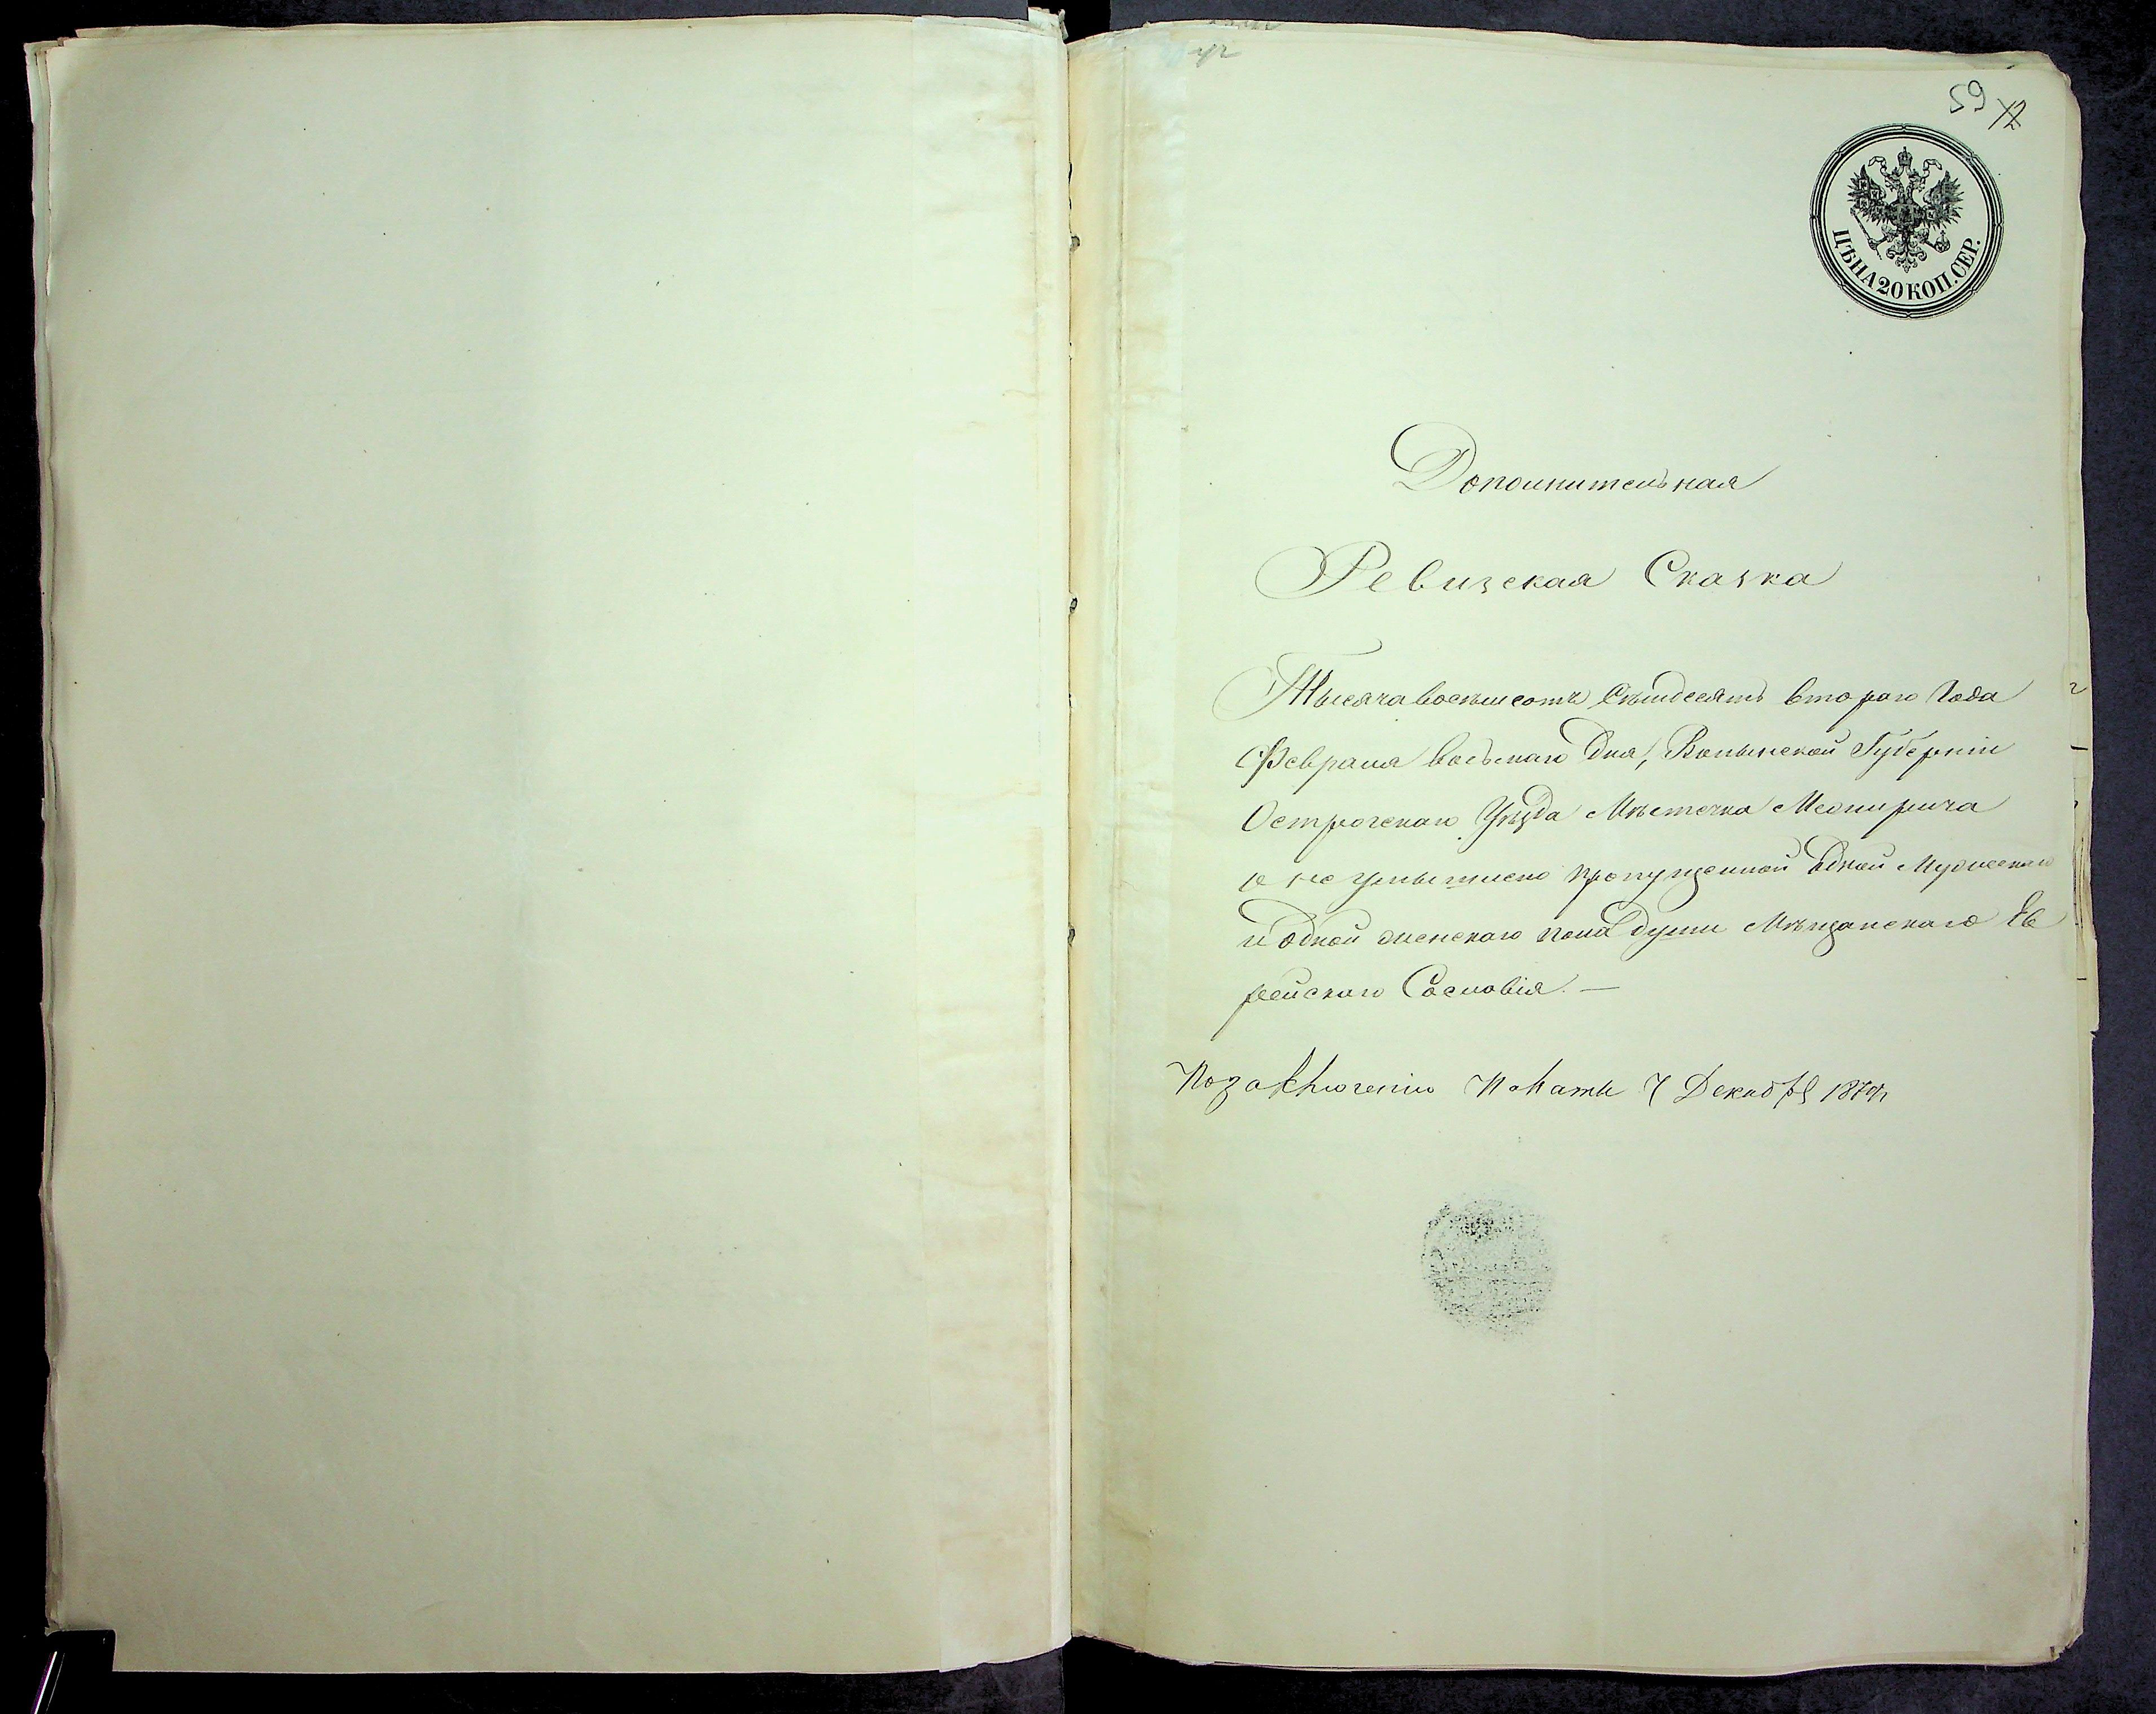 59
ЦѢНА 20 КОП. СЕР.
Дополнительная
Ревизская Сказка
Тысяча восемьсотъ Семьдесятъ втораго Года
Февраля восьмаго Дня, Волынской Губерніи
Острогскаго Уѣзда Мѣстечка Межирича
о не умышлено пропущенной одной Мужескаго
и одной женскаго пола души Мѣщанскаго Ев
рейскаго Сословія. —
По заключенію Палаты 7 Декабря